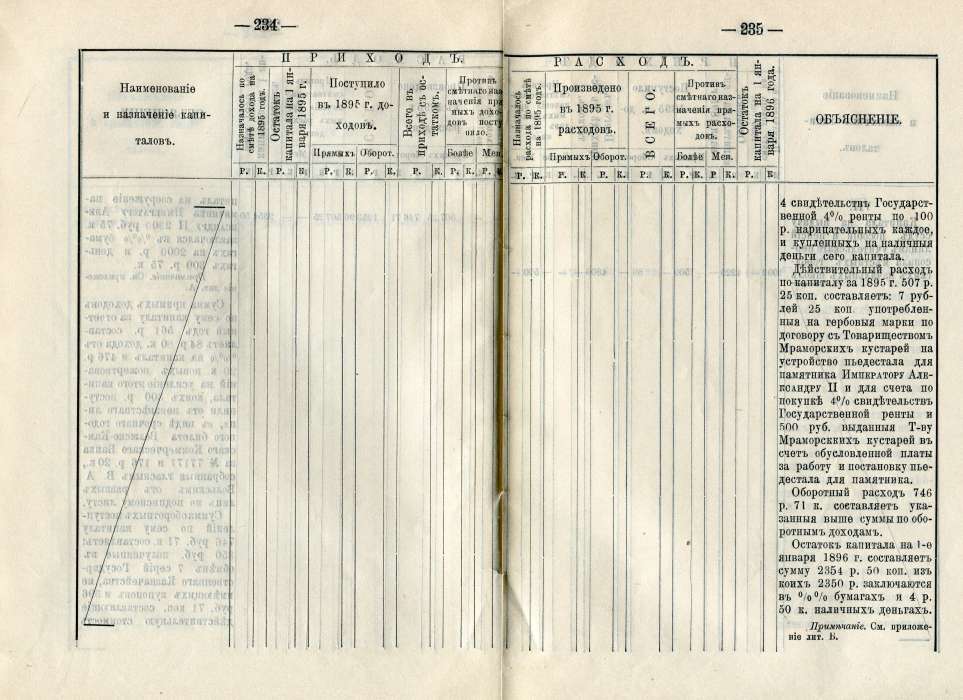 — 234 —
ПРИХОДЪ.
Наименованіе
и назначеніе капи-
таловъ.
Назначалось по
смѣтѣ дохода на
1895 годъ.
Остатокъ
капитала на 1 ян-
варя 1895 г.
Поступило
въ 1895 г. до-
ходовъ.
Прямыхъ
Оборот.
Всего въ
приходѣ съ ос-
таткомъ.
Противъ
смѣтнаго наз-
наченія пря
мыхъ дохо-
довъ посту
пило.
Болѣе
Мен.
Р. К. Р. К. Р. К. Р. К. Р. К. Р. К. Р. К.
— 235 —
РАСХОДЪ.
Назначалось
расхода по смѣтѣ
на 1895 годъ.
Произведено
въ 1895 г.
расходовъ.
Прямыхъ
Оборот.
ВСЕГО.
Противъ
смѣтнаго наз-
наченія пря-
мыхъ расхо-
довъ.
Болѣе
Мен.
Остатокъ
капитала на 1 ян-
варя 1896 года.
ОБЪЯСНЕНІЕ.
Р. К. Р. К. Р. К. Р. К. Р. К. Р. К. Р. К.
4 свидѣтельствъ Государст-
венной 4% ренты по 100
р. нарицательныхъ каждое,
и купленныхъ на наличныя
деньги сего капитала.
Дѣйствительный расходъ
по капиталу за 1895 г. 507 р.
25 коп. составляетъ: 7 руб-
лей 25 коп. употреблен-
ныя на гербовыя марки по
договору съ Товариществомъ
Мраморскихъ кустарей на
устройство пьедестала для
памятника Императору Алек-
сандру II и для счета по
покупкѣ 4% свидѣтельствъ
Государственной ренты и
500 руб. выданныя Т-ву
Мраморсккихъ кустарей въ
счетъ обусловленной платы
за работу и постановку пье-
дестала для памятника.
Оборотный расходъ 746
р. 71 к. составляетъ ука-
занныя выше суммы по обо-
ротнымъ доходамъ.
Остатокъ капитала на 1-е
января 1896 г. составляетъ
сумму 2354 р. 50 коп. изъ
коихъ 2350 р. заключаются
въ %% бумагахъ и 4 р.
50 к. наличныхъ деньгахъ.
Примѣчаніе. См. приложе-
ніе лит. Б.